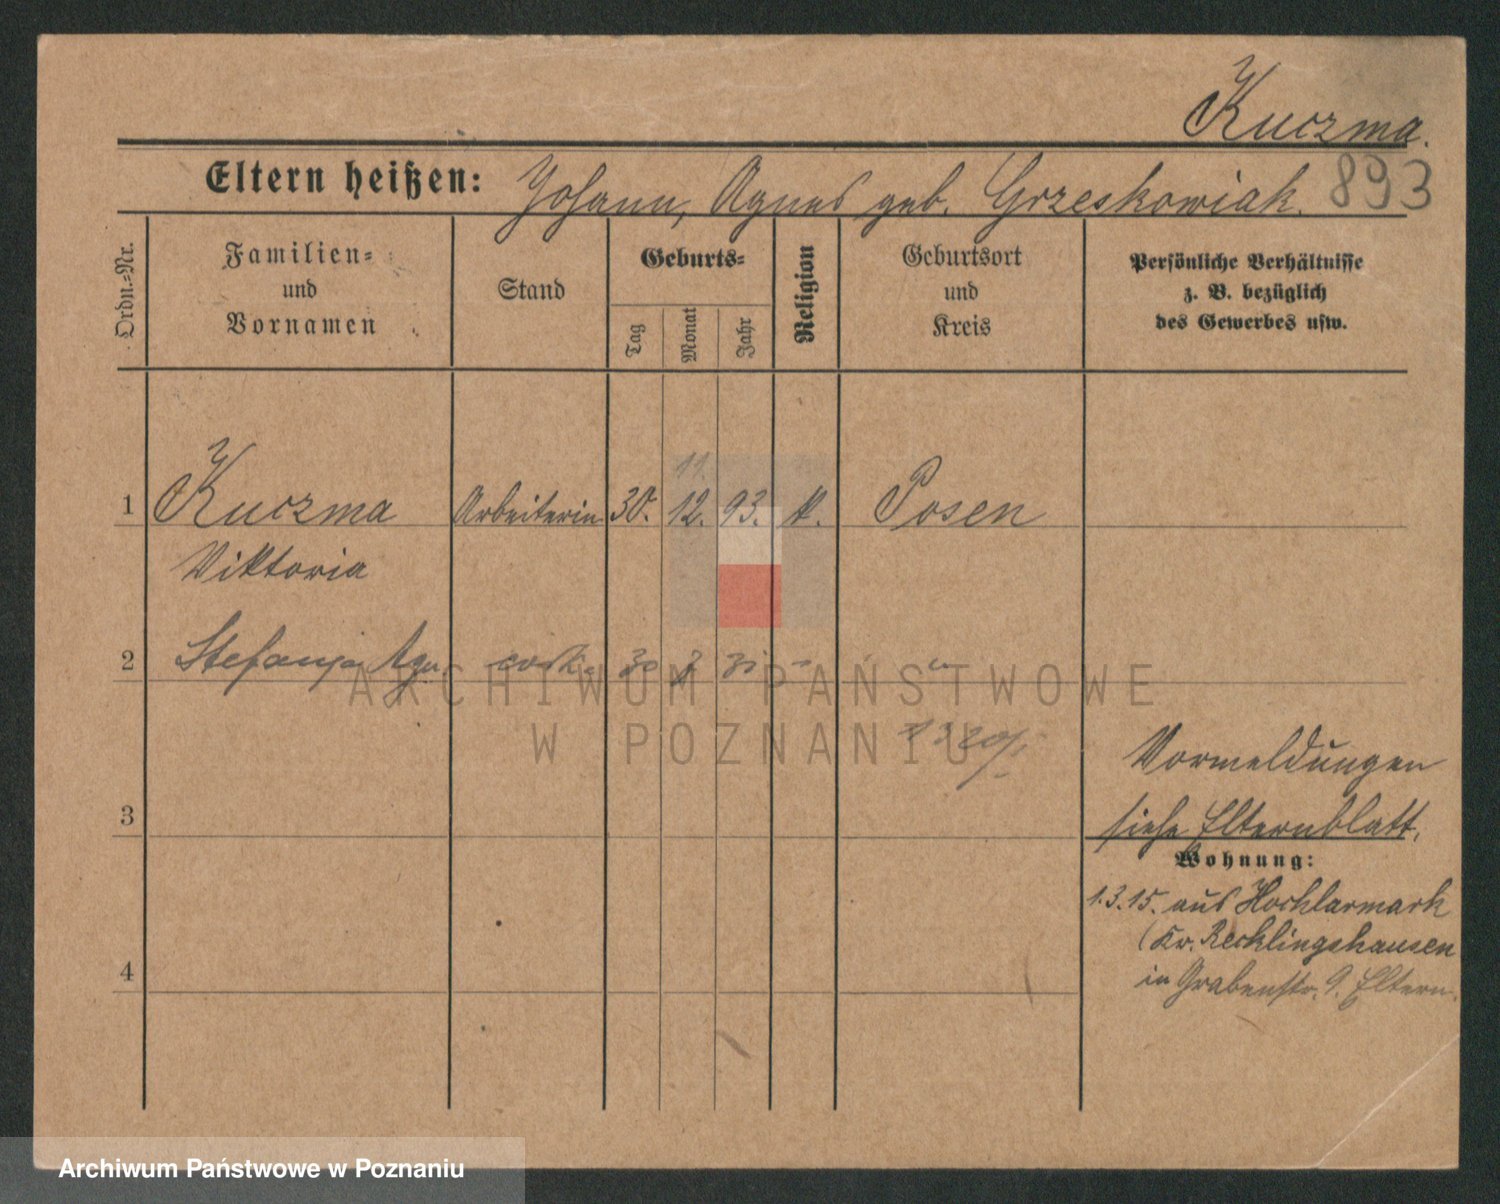 Kuczma.
Eltern heißen: Johann, Agnes geb. Grzeskowiak. 893
Ordn.-Nr.
Familien-
und
Vornamen
Stand
Geburts-
Tag
Monat
Jahr
Religion
Geburtsort
und
Kreis
Persönliche Verhältnisse
z. B. bezüglich
des Gewerbes usw.
11.
1 Kuczma Arbeiterin 30. 12. 93. k. Posen
Viktoria
2 Stefanja Agn. córk. 30
ARCHIWUM PAŃSTWOWE
W POZNANIU
Vormeldungen
3 siehe Elternblatt.
Wohnung:
1.3.15. aus Hochlarmark
(Kr. Recklingshausen
4 in Grabenstr. 9. Eltern.
Archiwum Państwowe w Poznaniu